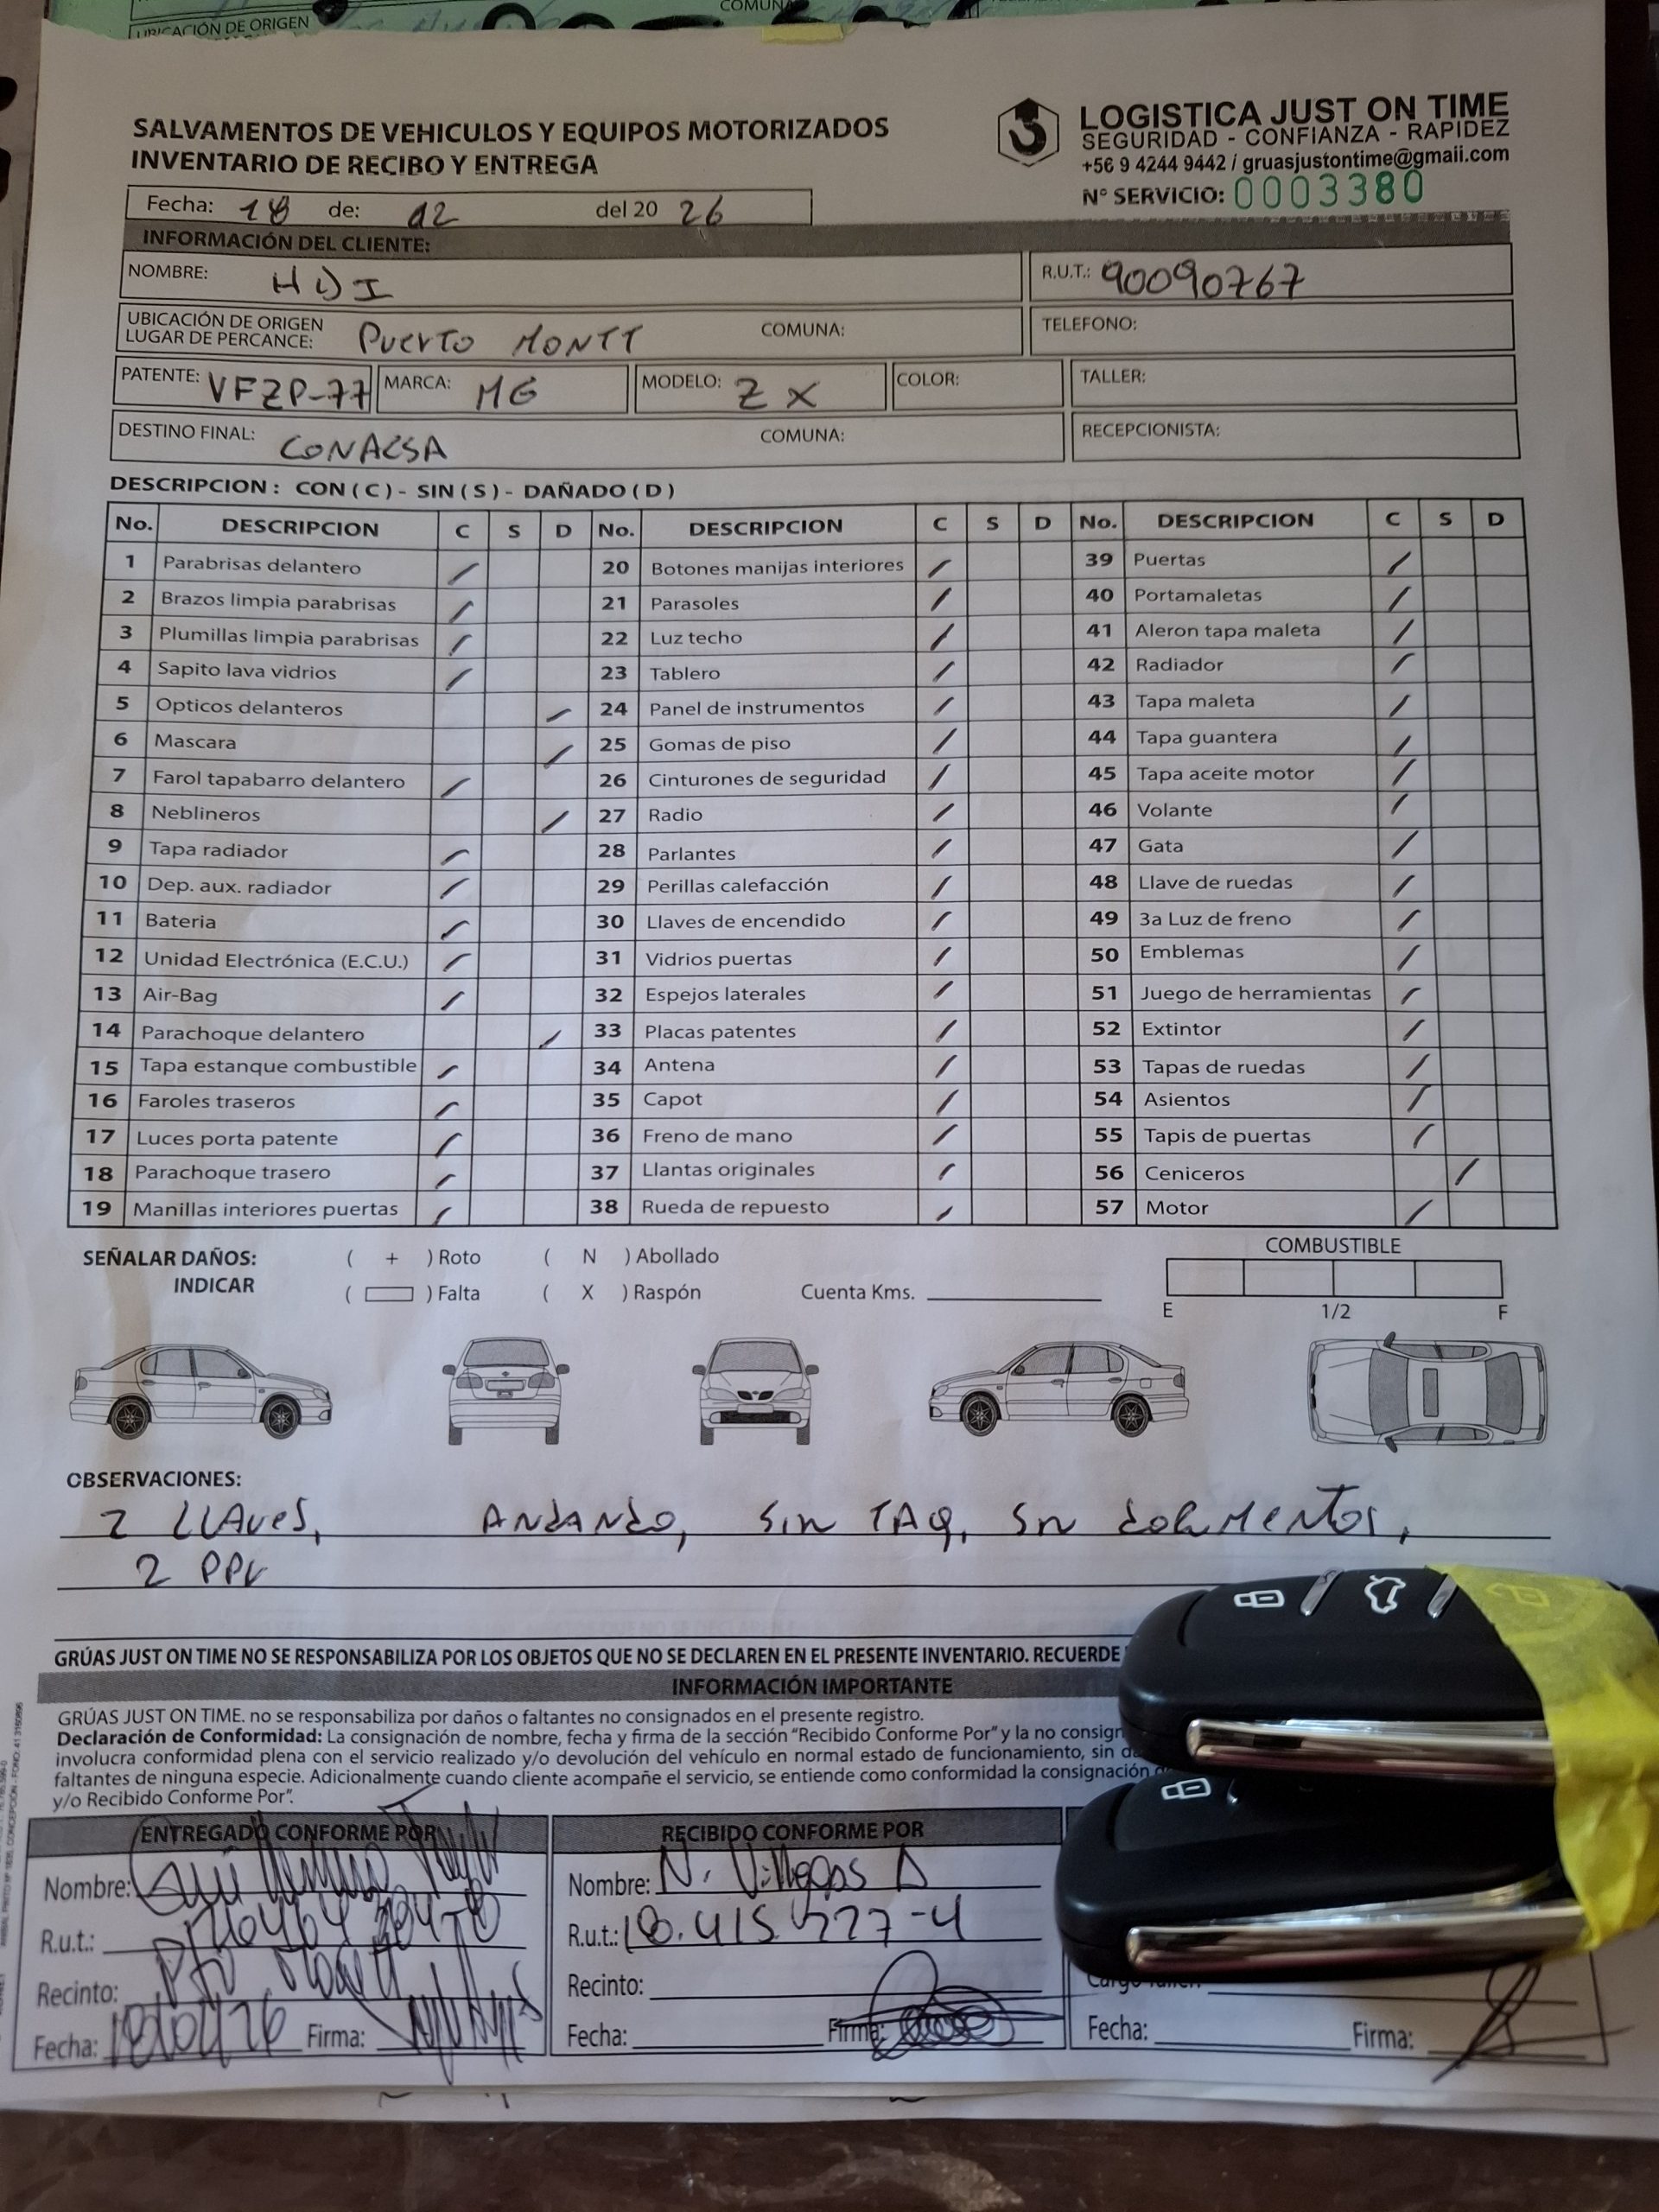 COMUNA
UBICACIÓN DE ORIGEN
SALVAMENTOS DE VEHICULOS Y EQUIPOS MOTORIZADOS
INVENTARIO DE RECIBO Y ENTREGA
LOGISTICA JUST ON TIME
SEGURIDAD - CONFIANZA - RAPIDEZ
+56 9 4244 9442 / gruasjustontime@gmail.com
N° SERVICIO: 0003380
Fecha: 18 de: 02 del 20 26
INFORMACIÓN DEL CLIENTE:
NOMBRE: HDI R.U.T.: 90090767
UBICACIÓN DE ORIGEN
LUGAR DE PERCANCE: Puerto MONTT COMUNA: TELEFONO:
PATENTE: VFZP-77 MARCA: MG MODELO: ZX COLOR: TALLER:
DESTINO FINAL: CONALSA COMUNA: RECEPCIONISTA:
DESCRIPCION : CON ( C ) - SIN ( S ) - DAÑADO ( D )
No. DESCRIPCION C S D No. DESCRIPCION C S D No. DESCRIPCION C S D
1 Parabrisas delantero / 20 Botones manijas interiores / 39 Puertas /
2 Brazos limpia parabrisas / 21 Parasoles / 40 Portamaletas /
3 Plumillas limpia parabrisas / 22 Luz techo / 41 Aleron tapa maleta /
4 Sapito lava vidrios / 23 Tablero / 42 Radiador /
5 Opticos delanteros / 24 Panel de instrumentos / 43 Tapa maleta /
6 Mascara / 25 Gomas de piso / 44 Tapa guantera /
7 Farol tapabarro delantero / 26 Cinturones de seguridad / 45 Tapa aceite motor /
8 Neblineros / 27 Radio / 46 Volante /
9 Tapa radiador / 28 Parlantes / 47 Gata /
10 Dep. aux. radiador / 29 Perillas calefacción / 48 Llave de ruedas /
11 Bateria / 30 Llaves de encendido / 49 3a Luz de freno /
12 Unidad Electrónica (E.C.U.) / 31 Vidrios puertas / 50 Emblemas /
13 Air-Bag / 32 Espejos laterales / 51 Juego de herramientas /
14 Parachoque delantero / 33 Placas patentes / 52 Extintor /
15 Tapa estanque combustible / 34 Antena / 53 Tapas de ruedas /
16 Faroles traseros / 35 Capot / 54 Asientos /
17 Luces porta patente / 36 Freno de mano / 55 Tapis de puertas /
18 Parachoque trasero / 37 Llantas originales / 56 Ceniceros /
19 Manillas interiores puertas / 38 Rueda de repuesto / 57 Motor /
SEÑALAR DAÑOS: ( + ) Roto ( N ) Abollado COMBUSTIBLE
INDICAR ( ) Falta ( X ) Raspón Cuenta Kms.
E 1/2 F
OBSERVACIONES:
2 LLAveS, ANdANdo, Sin TAG, Sn documentos,
2 PPU
GRÚAS JUST ON TIME NO SE RESPONSABILIZA POR LOS OBJETOS QUE NO SE DECLAREN EN EL PRESENTE INVENTARIO. RECUERDE
INFORMACIÓN IMPORTANTE
GRÚAS JUST ON TIME. no se responsabiliza por daños o faltantes no consignados en el presente registro.
Declaración de Conformidad: La consignación de nombre, fecha y firma de la sección "Recibido Conforme Por" y la no consign
involucra conformidad plena con el servicio realizado y/o devolución del vehículo en normal estado de funcionamiento, sin da
faltantes de ninguna especie. Adicionalmente cuando cliente acompañe el servicio, se entiende como conformidad la consignación
y/o Recibido Conforme Por".
ENTREGADO CONFORME POR RECIBIDO CONFORME POR
Nombre: Nombre: N. Villegas D
R.u.t.: R.u.t.: 18.415.727-4
Recinto: Pto Montt Recinto: Cargo Taller:
Fecha: Firma: Fecha: Firma: Fecha: Firma: